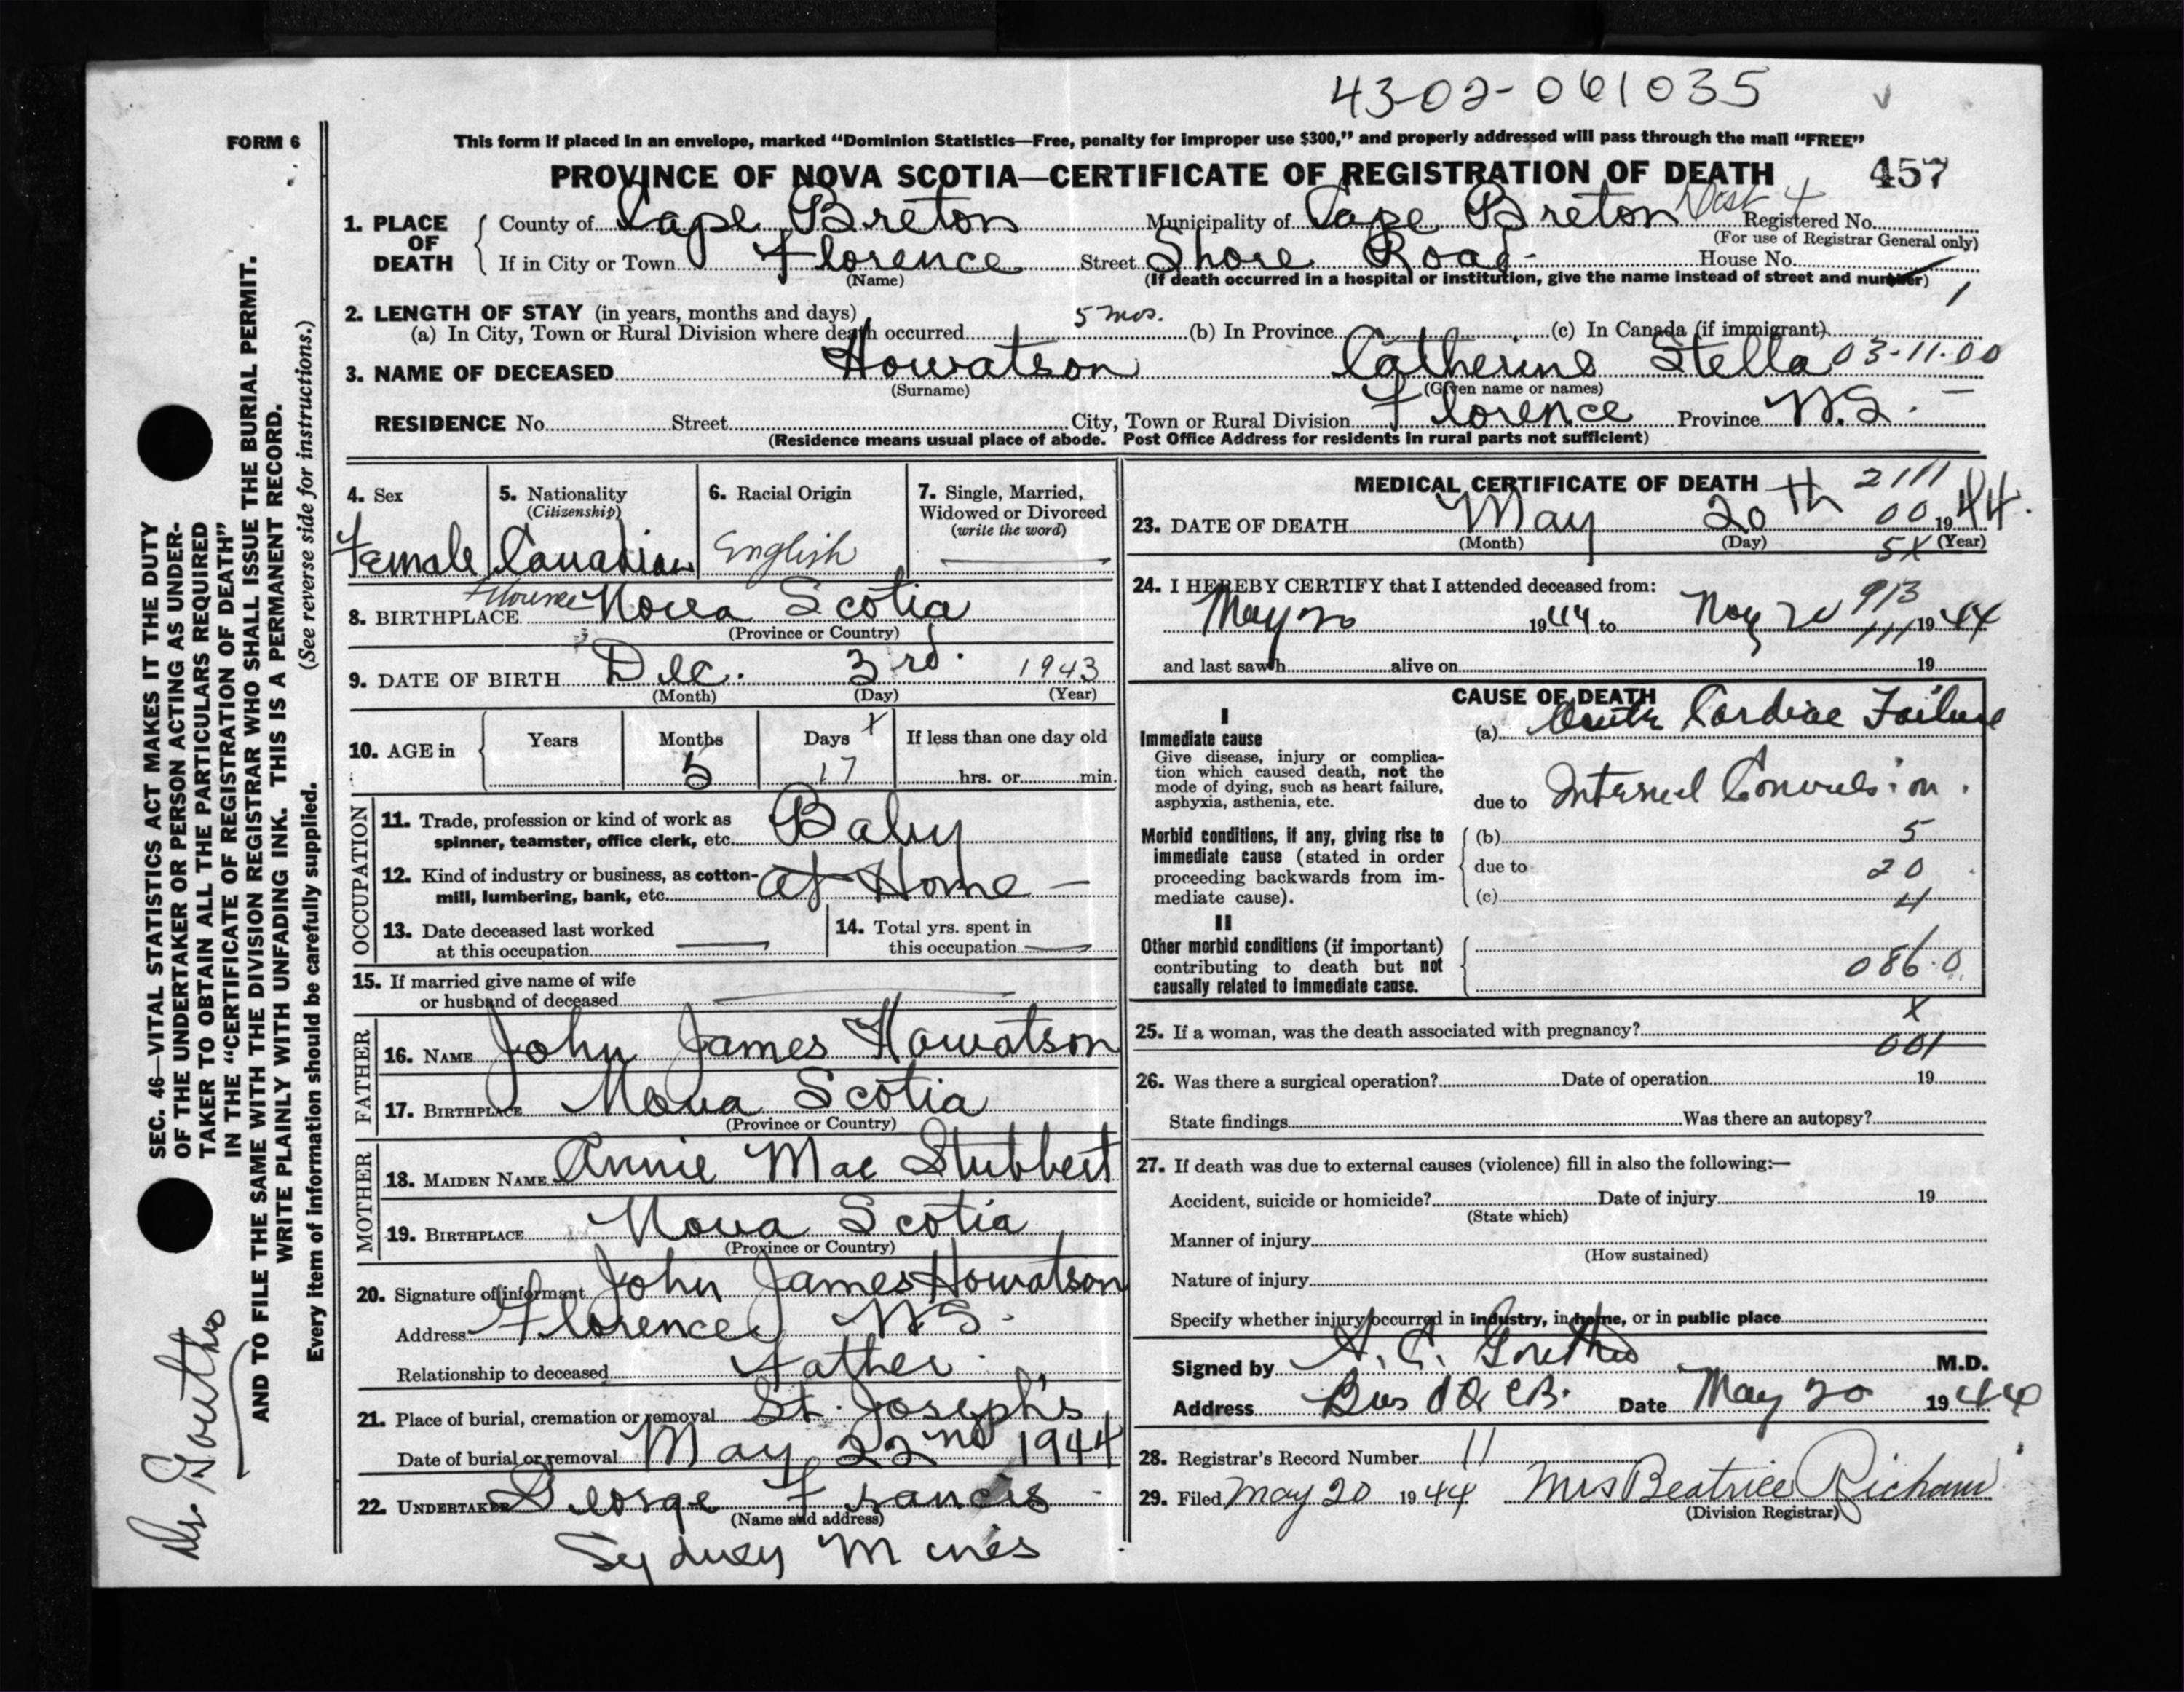 43-02-061035
FORM 6
This form if placed in an envelope, marked “Dominion Statistics—Free, penalty for improper use $300,” and properly addressed will pass through the mail “FREE”
PROVINCE OF NOVA SCOTIA—CERTIFICATE OF REGISTRATION OF DEATH 457
1. PLACE OF DEATH
County of Cape Breton Municipality of Cape Breton Dist 4 Registered No.
(For use of Registrar General only)
If in City or Town Florence Street Shore Road House No.
(Name) (If death occurred in a hospital or institution, give the name instead of street and number)
1
2. LENGTH OF STAY (in years, months and days)
(a) In City, Town or Rural Division where death occurred 5 mos. (b) In Province (c) In Canada (if immigrant)
3. NAME OF DECEASED Howatson Catherine Stella 03-11-00
(Surname) (Given name or names)
RESIDENCE No. Street City, Town or Rural Division Florence Province N.S.
(Residence means usual place of abode. Post Office Address for residents in rural parts not sufficient)
4. Sex 5. Nationality (Citizenship) 6. Racial Origin 7. Single, Married, Widowed or Divorced (write the word)
Female Canadian English
8. BIRTHPLACE Florence Nova Scotia
(Province or Country)
9. DATE OF BIRTH Dec. 3rd. 1943
(Month) (Day) (Year)
10. AGE in Years Months Days If less than one day old
5 17 hrs. or min.
OCCUPATION
11. Trade, profession or kind of work as
spinner, teamster, office clerk, etc. Baby
12. Kind of industry or business, as cotton-
mill, lumbering, bank, etc. at Home
13. Date deceased last worked
at this occupation
14. Total yrs. spent in
this occupation
15. If married give name of wife
or husband of deceased
FATHER
16. NAME John James Howatson
17. BIRTHPLACE Nova Scotia
(Province or Country)
MOTHER
18. MAIDEN NAME Annie Mae Stubbert
19. BIRTHPLACE Nova Scotia
(Province or Country)
20. Signature of informant John James Howatson
Address Florence N.S.
Relationship to deceased Father
21. Place of burial, cremation or removal St. Joseph's
Date of burial or removal May 22nd 1944
22. UNDERTAKER George Francis
(Name and address)
Sydney Mines
MEDICAL CERTIFICATE OF DEATH 2111
23. DATE OF DEATH May 20th 00 1944.
(Month) (Day) (Year)
5X
24. I HEREBY CERTIFY that I attended deceased from:
May 20 1944 to May 20 1944
913
and last saw h alive on 19
CAUSE OF DEATH
I
Immediate cause
Give disease, injury or complica-
tion which caused death, not the
mode of dying, such as heart failure,
asphyxia, asthenia, etc.
(a) Acute Cardiac Failure
due to Internal Convulsion.
Morbid conditions, if any, giving rise to
immediate cause (stated in order
proceeding backwards from im-
mediate cause).
(b) 5
due to 20
(c) 4
II
Other morbid conditions (if important)
contributing to death but not
causally related to immediate cause.
086.0
X
25. If a woman, was the death associated with pregnancy?
001
26. Was there a surgical operation? Date of operation 19
State findings Was there an autopsy?
27. If death was due to external causes (violence) fill in also the following:—
Accident, suicide or homicide? Date of injury 19
(State which)
Manner of injury
(How sustained)
Nature of injury
Specify whether injury occurred in industry, in home, or in public place
Signed by M.D.
Address Date May 20 1944
28. Registrar's Record Number 11
29. Filed May 20 1944 Mrs Beatrice
(Division Registrar)
SEC. 46—VITAL STATISTICS ACT MAKES IT THE DUTY
OF THE UNDERTAKER OR PERSON ACTING AS UNDER-
TAKER TO OBTAIN ALL THE PARTICULARS REQUIRED
IN THE “CERTIFICATE OF REGISTRATION OF DEATH”
AND TO FILE THE SAME WITH THE DIVISION REGISTRAR WHO SHALL ISSUE THE BURIAL PERMIT.
WRITE PLAINLY WITH UNFADING INK. THIS IS A PERMANENT RECORD.
(See reverse side for instructions.)
Every item of information should be carefully supplied.
Dr.